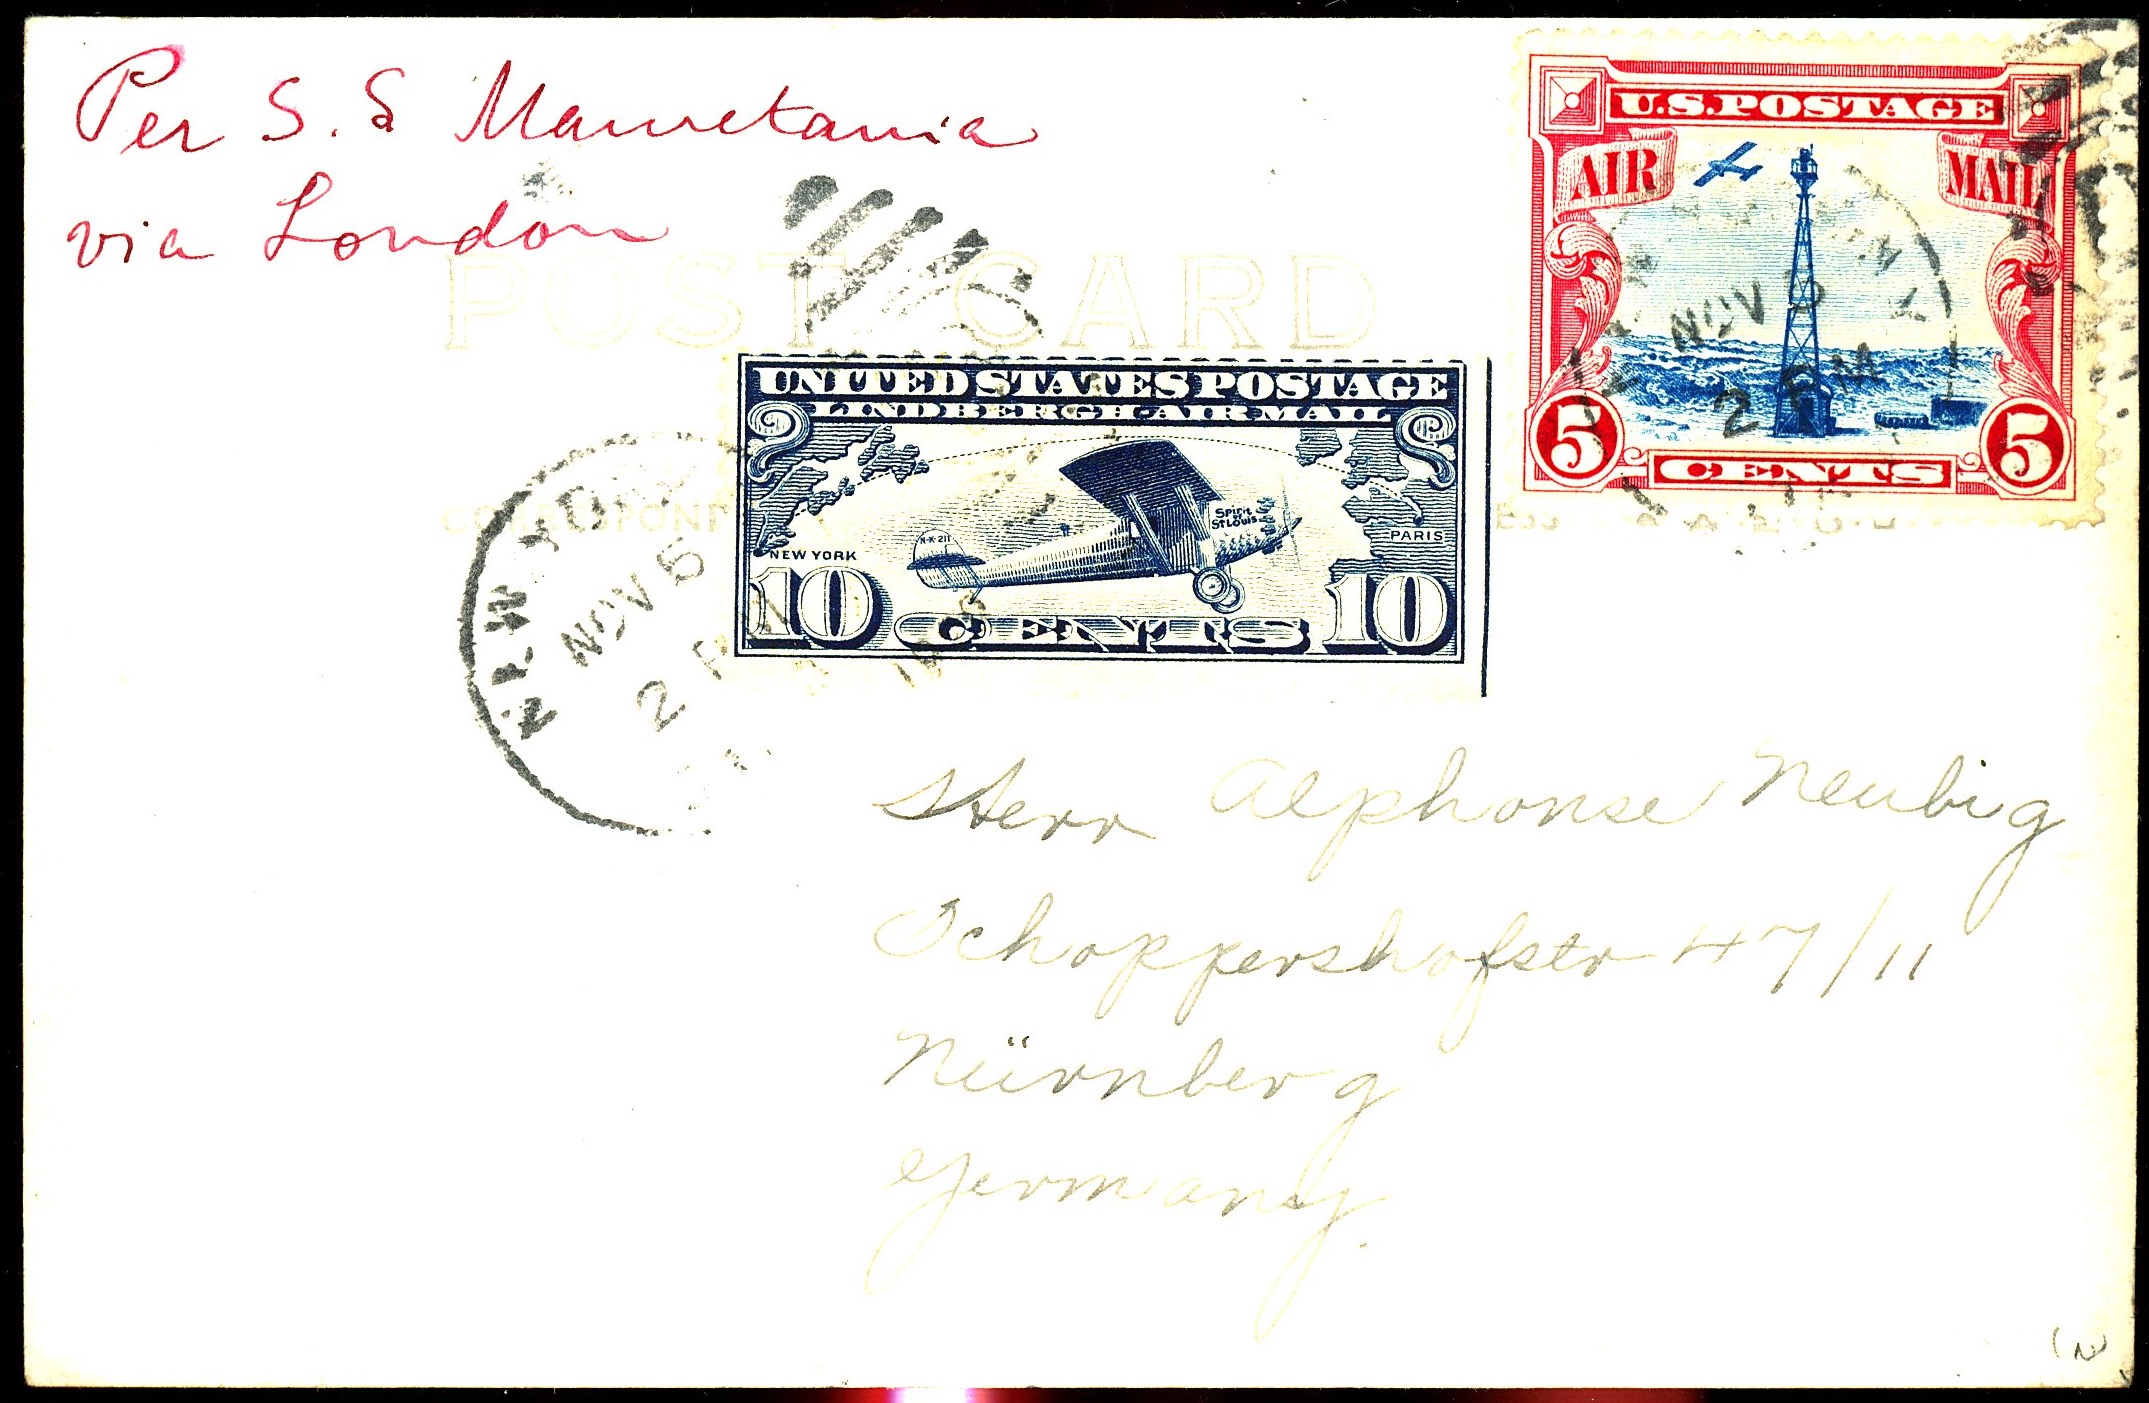 Per S.S Mauretania
via London
POST CARD
U.S.POSTAGE
AIR MAIL
5 CENTS 5
UNITED STATES POSTAGE
LINDBERGH-AIR MAIL
Spirit
of
St Louis
N-X-211
NEW YORK
PARIS
10 CENTS 10
NEW YORK
NOV 5
2 PM
NOV 5
2 PM
Herr Alphonse Neubig
Schoppershofstr 47/11
Nürnberg
Germany.
(N)